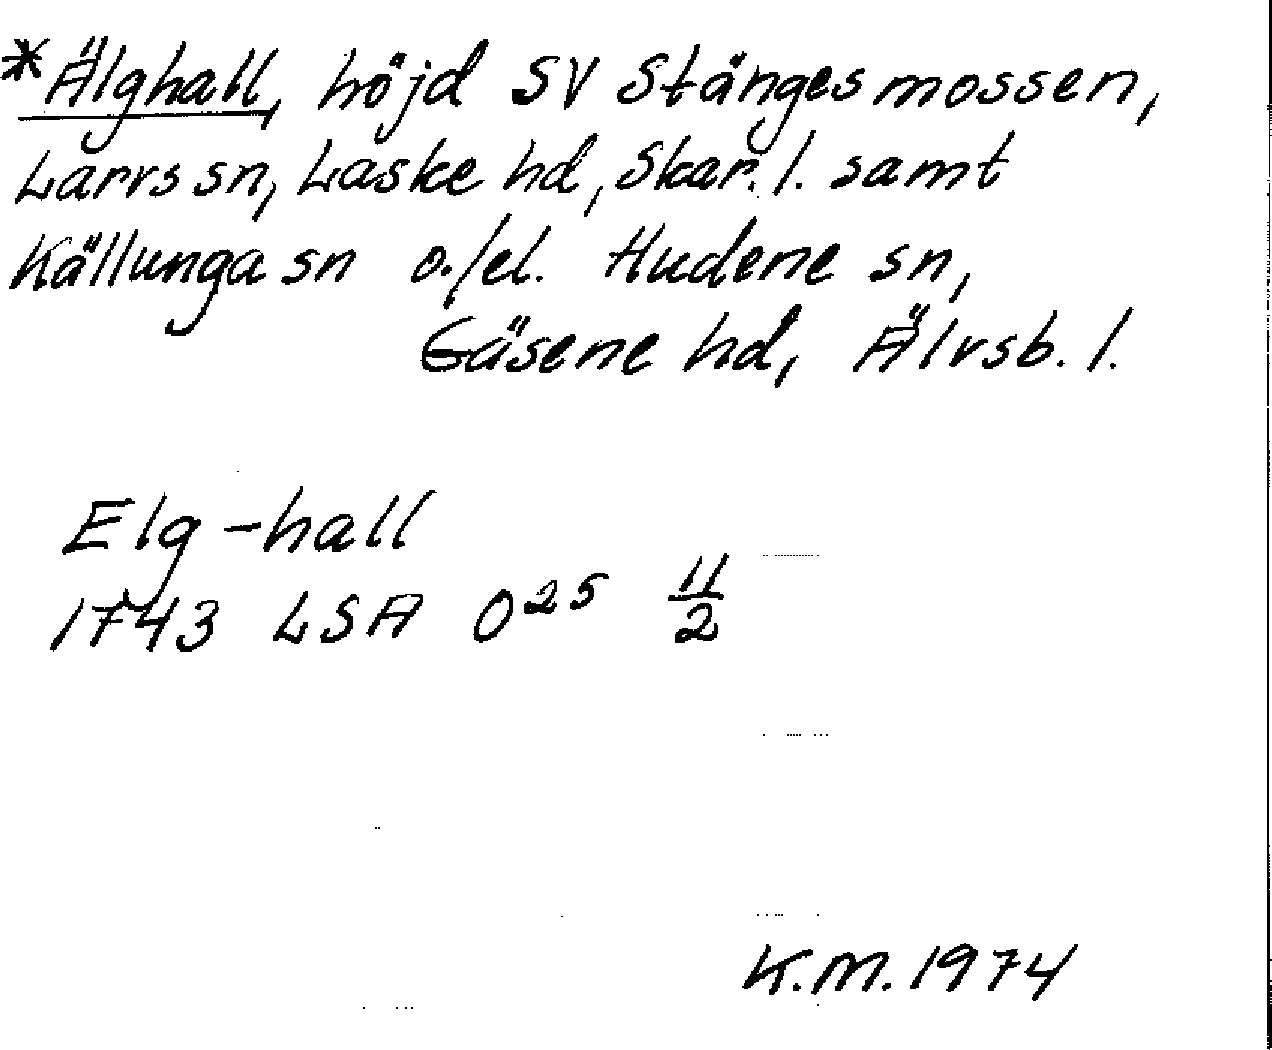 *Älghall, höjd SV Stängesmossen,
Larvs sn, Laske hd, Skar. l. samt
Källunga sn o./el. Hudene sn,
Gäsene hd, Älvsb. l.
Elg-hall
1743 LSA O25 11/2
K.M. 1974